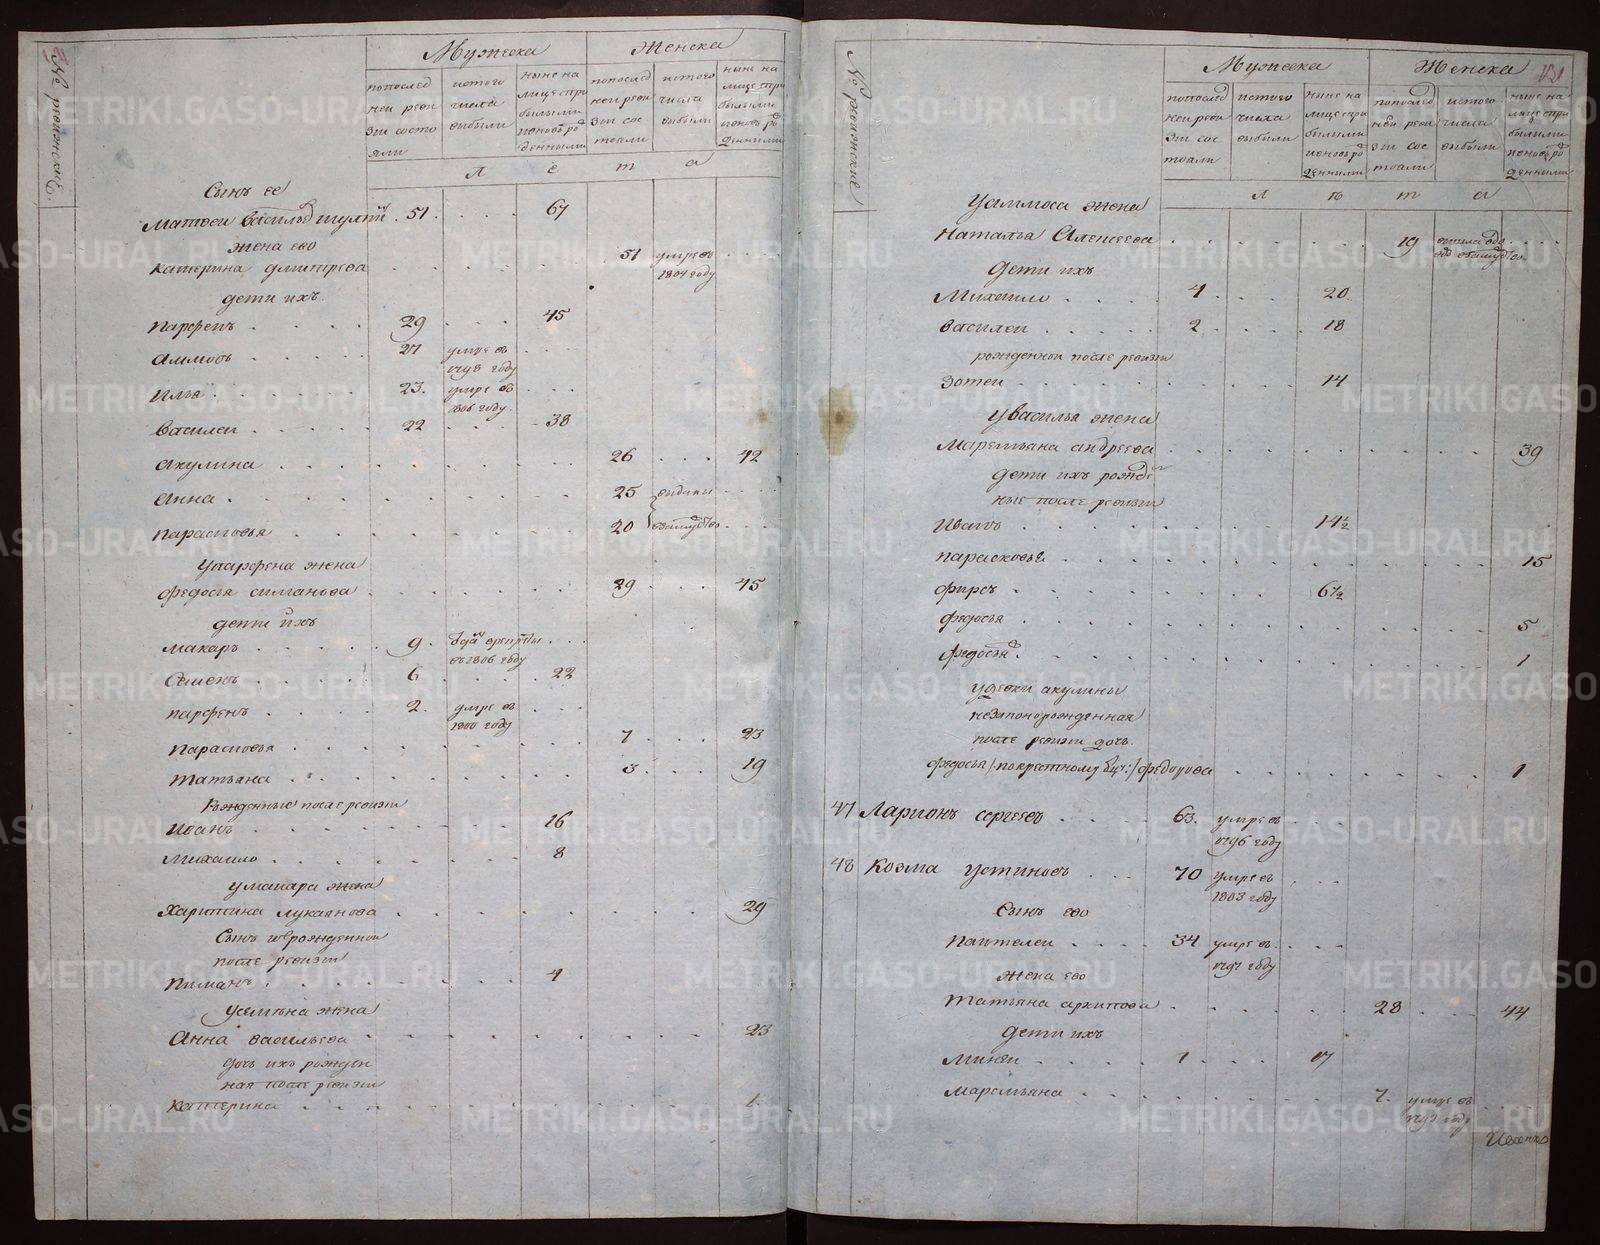 № ревижские
Мужеска
Женска
попослед ней реви зии состо яли
истого числа выбыли
ныне на лице при былыми иеновь ро денными
попослед ней реви зии сос тояли
истого числа выбыли
ныне на лице при былыми
Л е т а
Сынъ ее
Матвеи Васильев 51 . . . 67
жена ево
Катерина Дмитрева 51 умре въ 1804 году
дети ихъ
Парфенъ 29 . . . 45
Аммосъ 27 умре въ
году
Илья 23 умре въ
1806 году
Василеи 22 . . . 38
Акулина 26 . . . 42
Анна 25 выданы
Парасковья 20 взамужство
Упарфена жена
Федосья симанова 29 . . . 45
дети ихъ
Макаръ 9
въ 1806 году
Семенъ 6 . . . 22
Парфенъ 2 умре въ
1800 году
Парасковья 7 . . . 23
Татьяна 3 . . . 19
Рожденные после ревизии
Иванъ 16
Михаило 8
умакара жена
Харитина лукоянова 29
Сынъ рожденнои
после ревизии
Пиманъ 4
Усемена жена
Анна васильева 23
дочь ихъ рожден
ная после ревизии
Катерина 1
№ ревижские
Мужеска
Женска
попослед ней реви зии сос тояли
истого числа выбыли
ныне на лице при былыми
попослед ней реви зии сос тояли
истого числа выбыли
ныне на лице при былыми
Л е т а
Уаммоса жена
Наталья Алексеева 19
дети ихъ
Михаило 4 . . . 20
Василеи 2 . . . 18
рожденнои после ревизии
Зотеи 14
Увасилья жена
Маремьяна андреева 39
дети ихъ рожде
ные после ревизии
Иванъ 14½
Парасковья 15
Фирсъ 6½
Федосья 5
Федосья 1
удевки акулины
незаконорожденная
после ревизии дочь
Федосья / покрестному / федорова 1
47 Ларионъ сергеевъ 63 умре въ
году
48 Козма устиновъ 70 умре въ
1803 году
Сынъ ево
Пантелеи 34 умре въ
году
жена ево
Татьяна архипова 28 . . . 44
дети ихъ
Михеи 1 . . . 17
Маремьяна 7 умре въ
году
METRIKI.GASO-URAL.RU